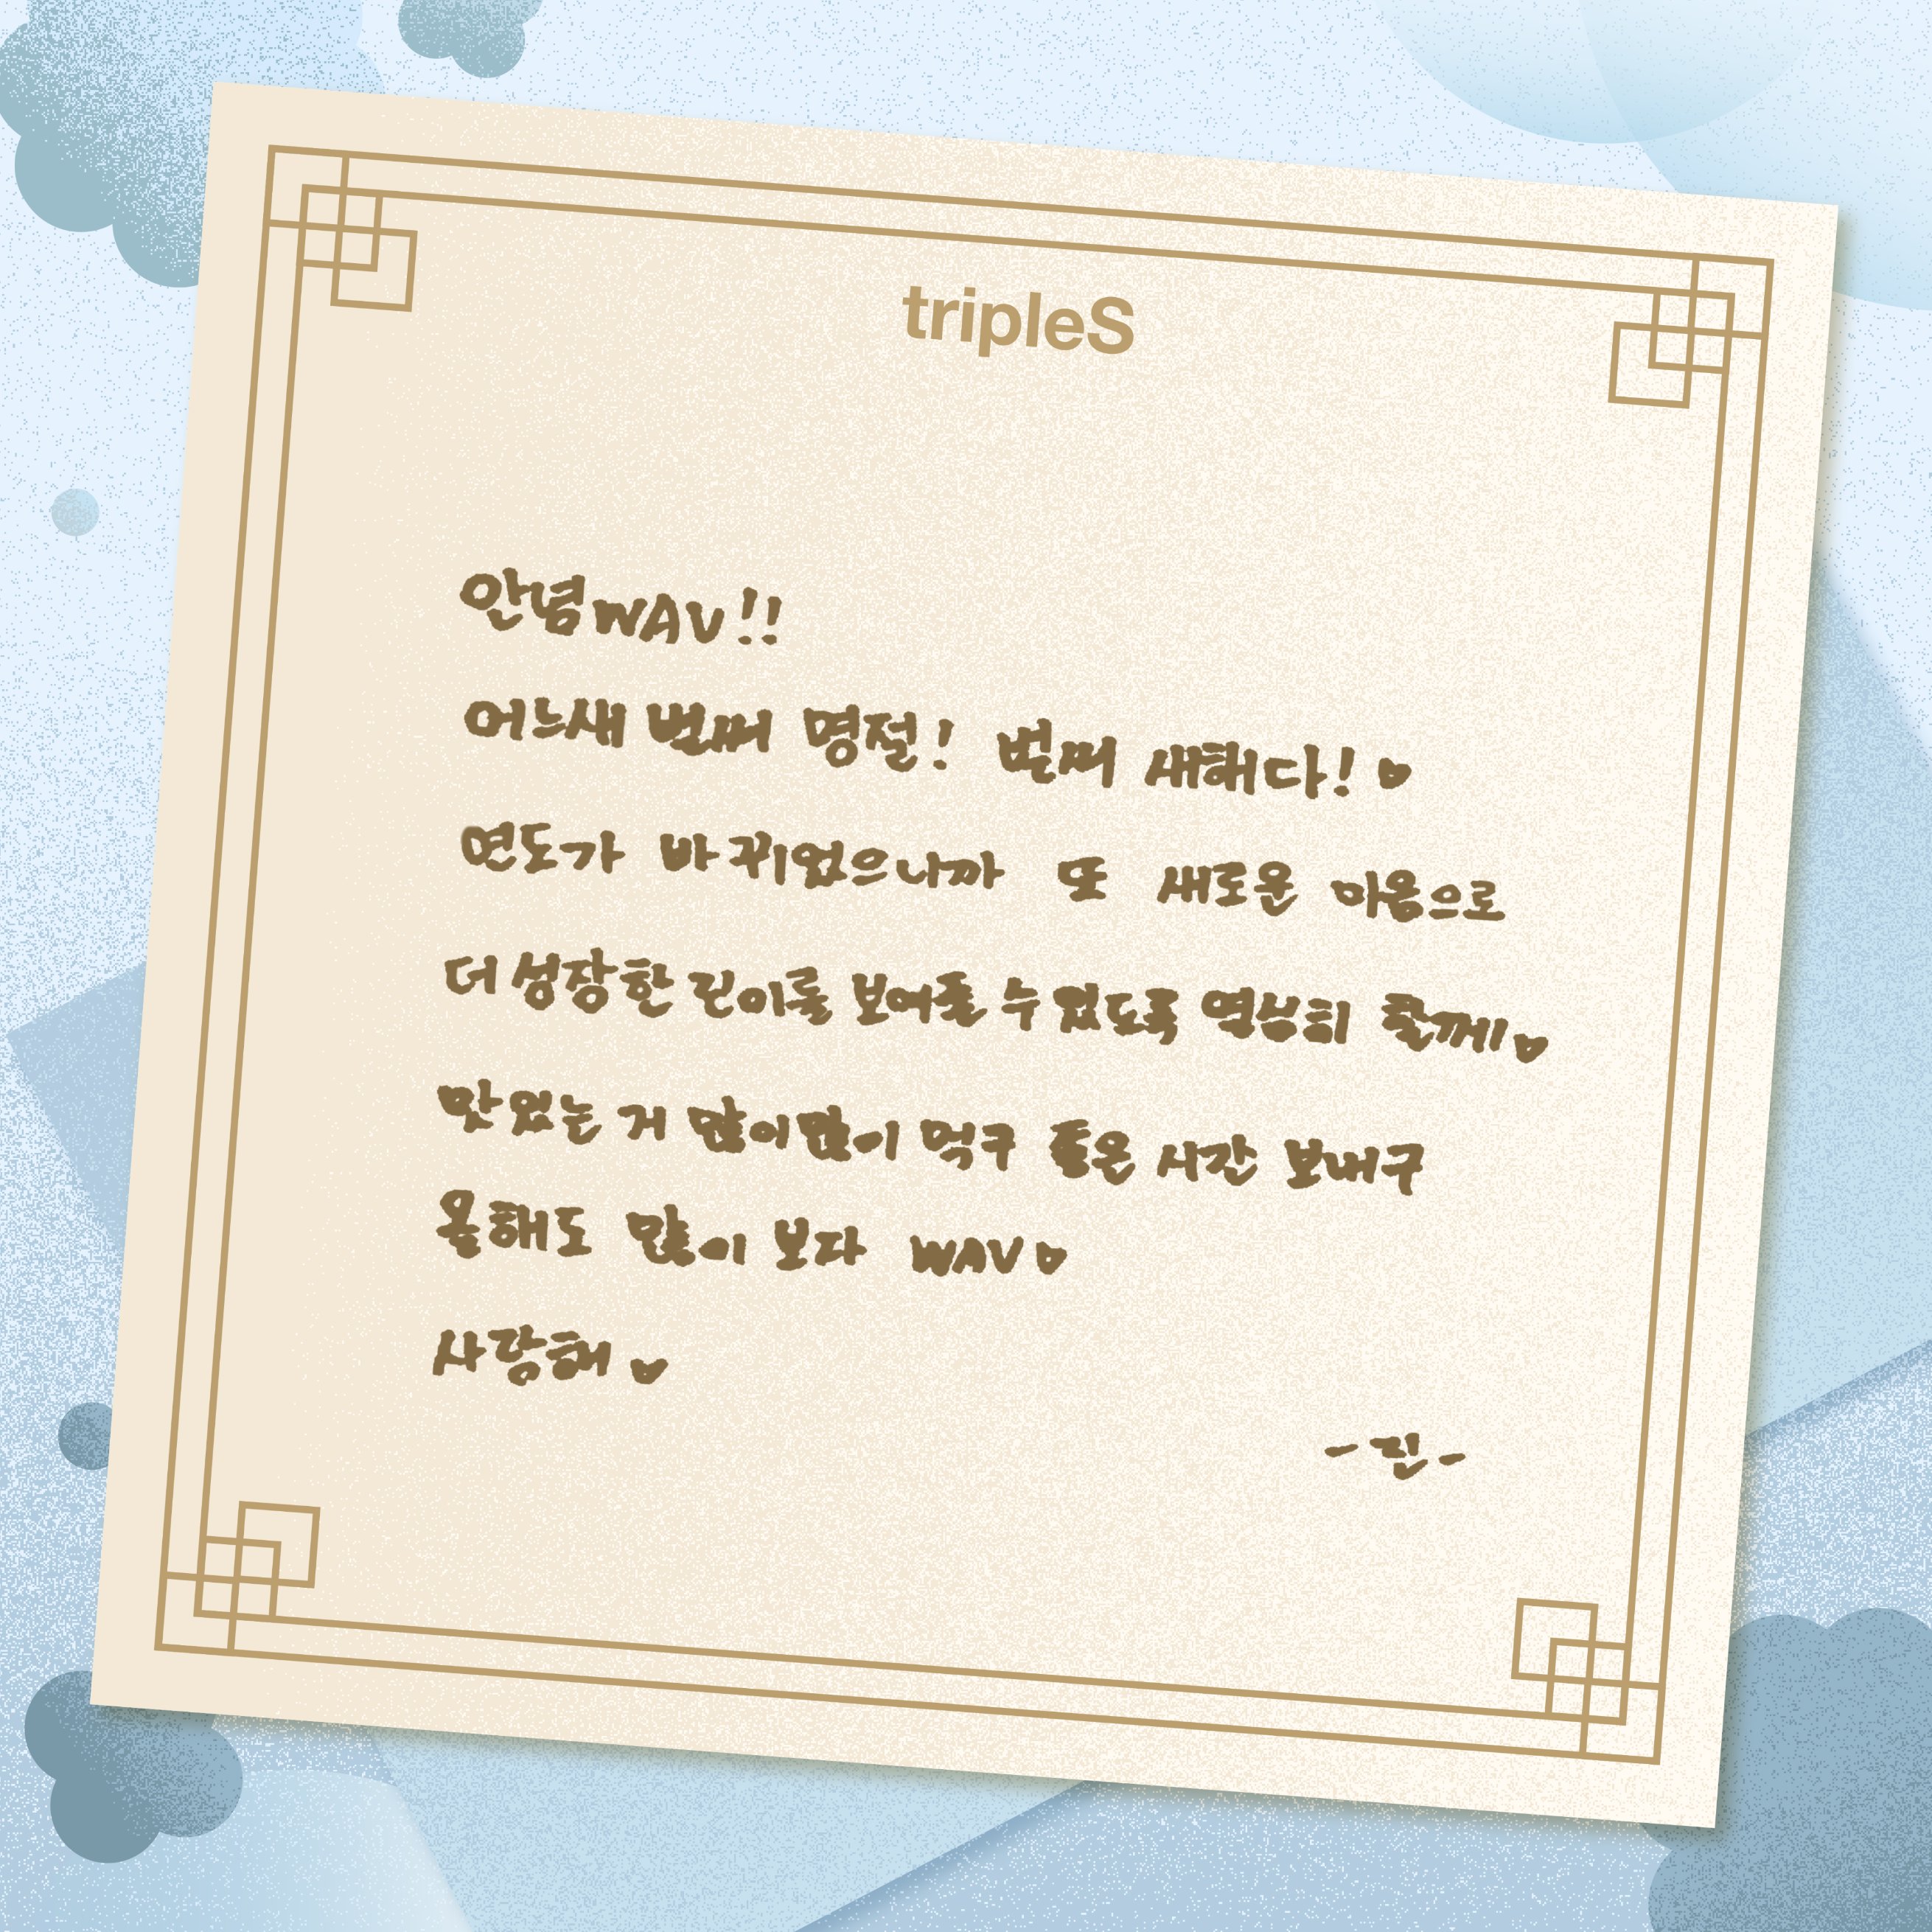 tripleS
안녕 WAV!!
어느새 벌써 명절! 벌써 새해다! ♥
연도가 바뀌었으니까 또 새로운 마음으로
더 성장한 린이를 보여줄 수 있도록 열심히 할께! ♥
맛있는 거 많이많이 먹구 좋은 시간 보내구
올해도 많이 보자 WAV ♥
사랑해 ♥
- 린 -